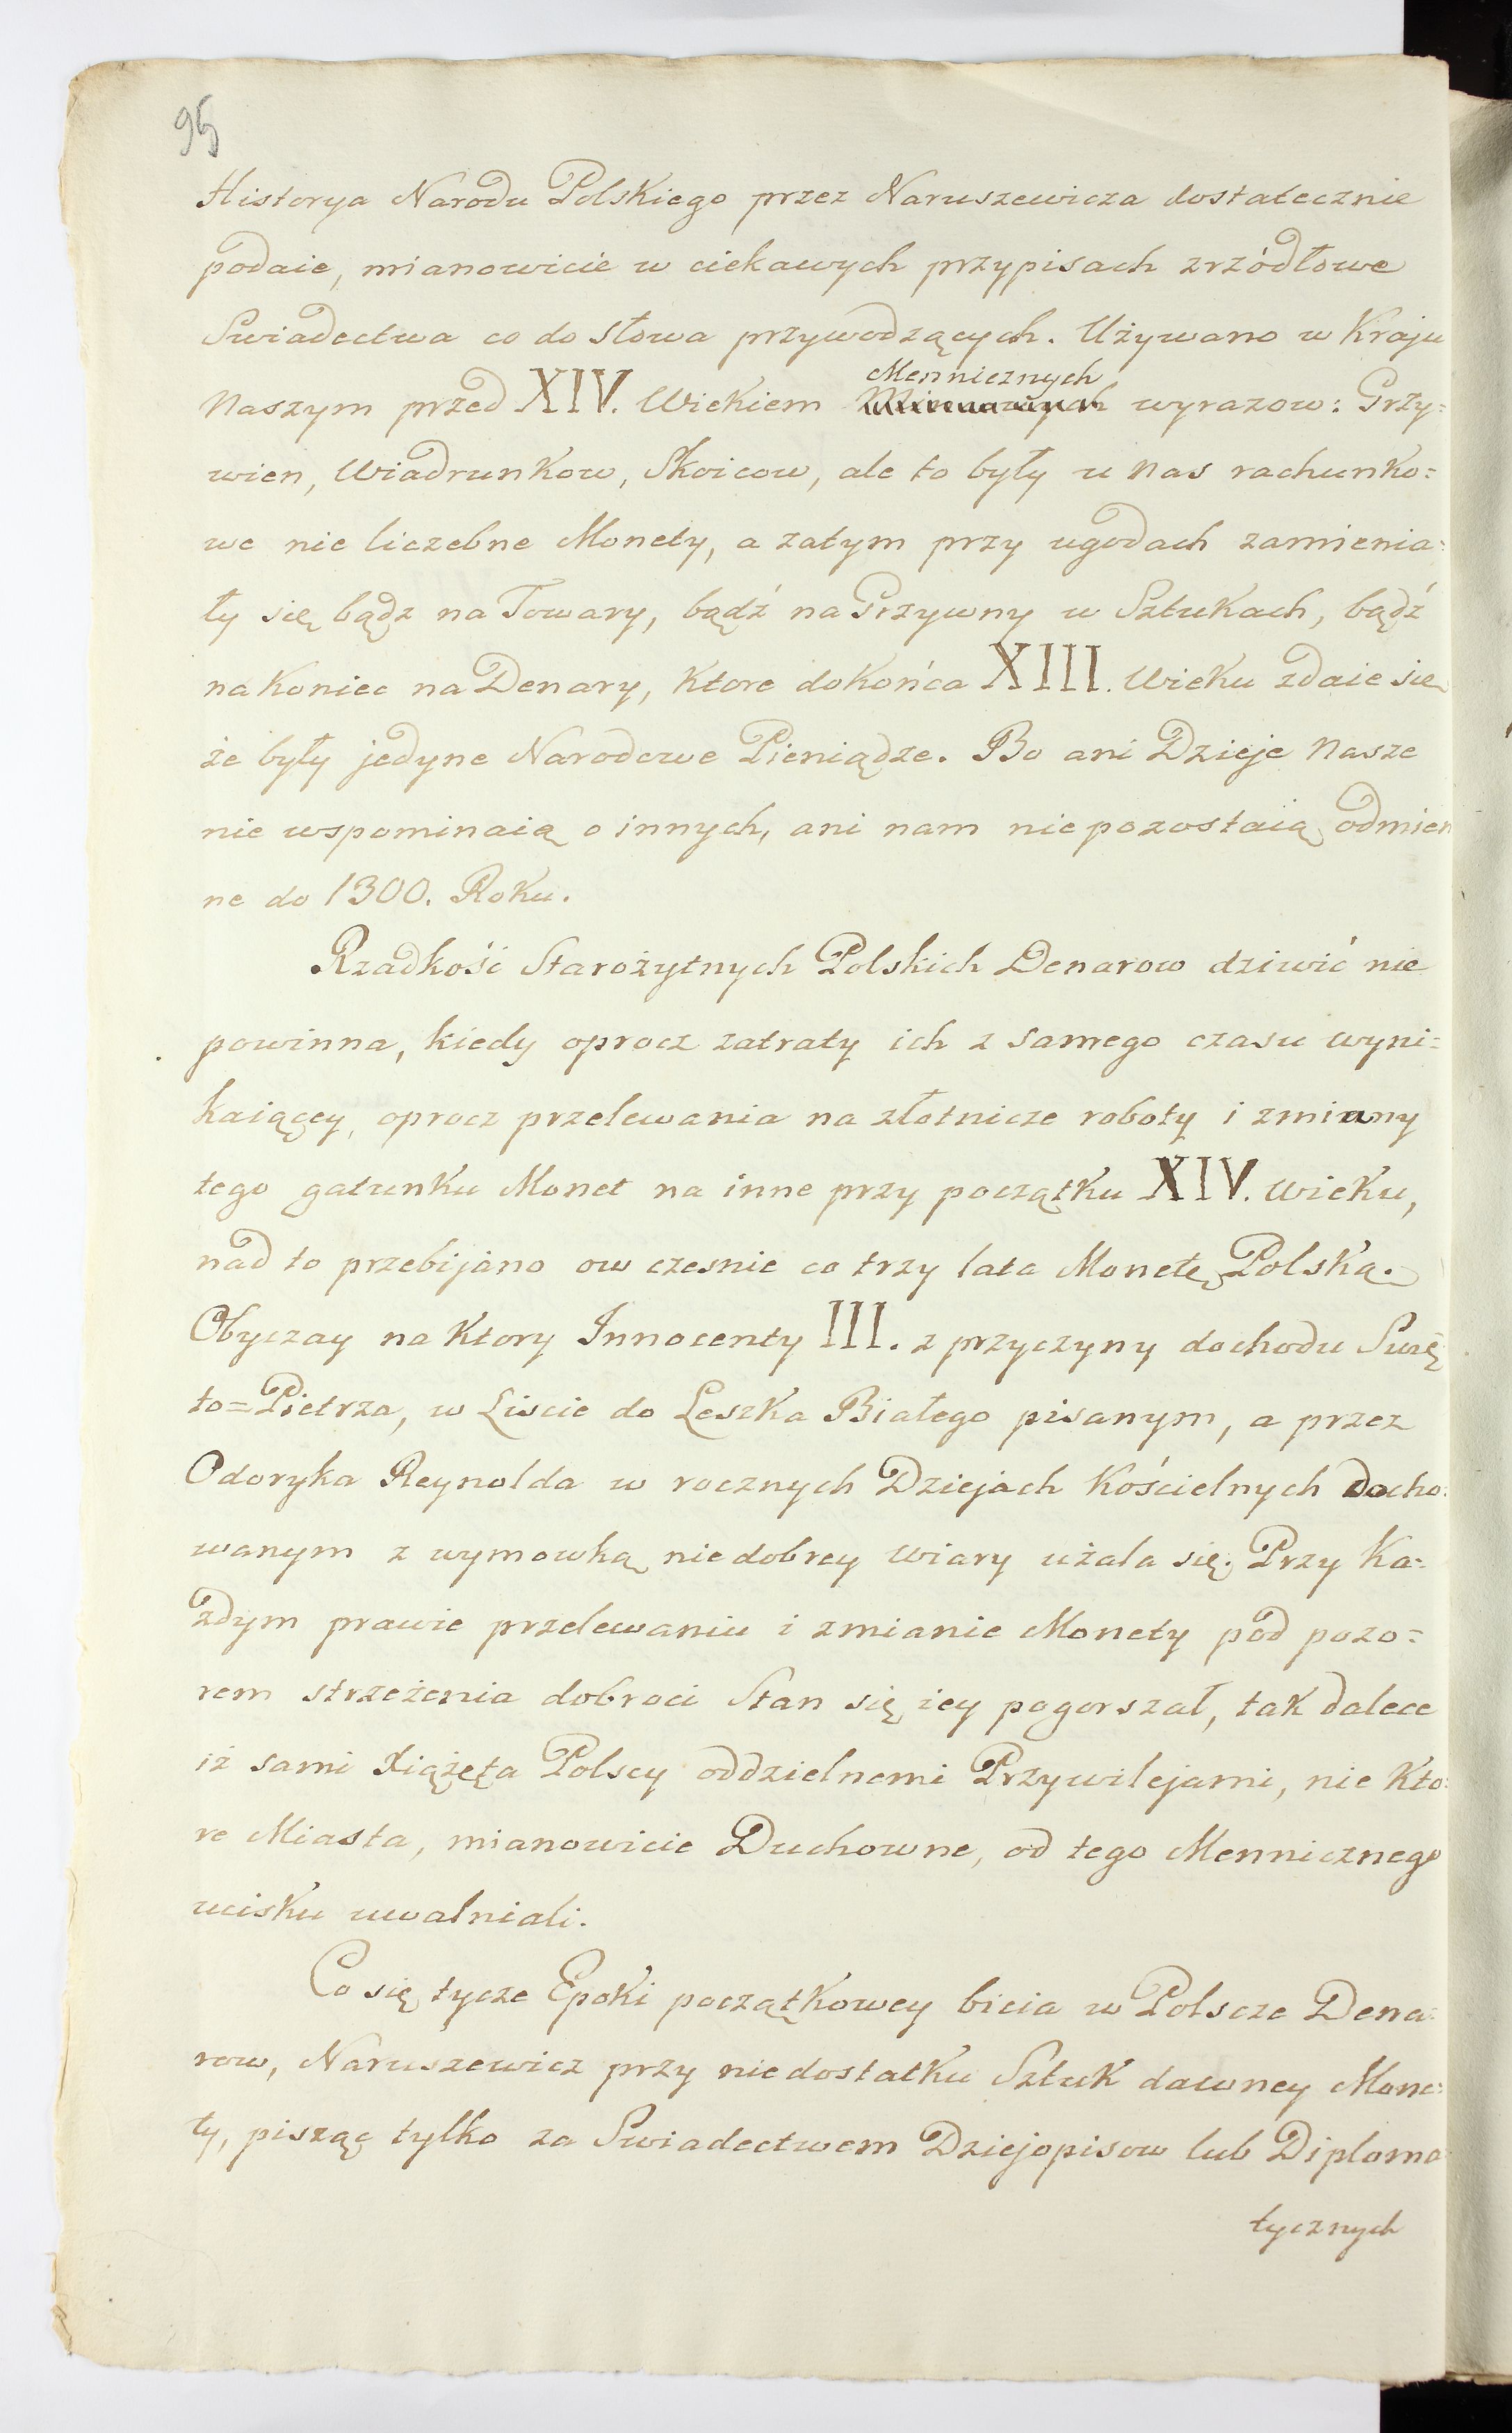 95
Historya Narodu Polskiego przez Naruszewicza dostatecznie
podaie, mianowicie w ciekawych przypisach zrzódłowe
Swiadectwa co do słowa przywodzących. Używano w Kraju
Mennicznych
Naszym przed XIV. Wiekiem wyrazow: Grzy=
wien, Wiadrunkow, Skoicow, ale to były u Nas rachunko=
we nie liczebne Monety, a zatym przy ugodach zamienia=
ły się bądz na Towary, bądź na Grzywny w Sztukach, bądź
na koniec na Denary, Ktore do Końca XIII. Wieku zdaie się
że były jedyne Narodowe Pieniądze. Bo ani Dzieje Nasze
nie wspominaią o innych, ani nam nie pozostaią odmien
ne do 1300. Roku.
Rzadkość Starożytnych Polskich Denarow dziwić nie
powinna, kiedy oprocz zatraty ich z samego czasu wyni=
kaiącey, oprocz przelewania na złotnicze roboty i zmiany
tego gatunku Monet na inne przy początku XIV. Wieku,
nad to przebijano ow czesnie co trzy lata Monetę Polską.
Obyczay na Ktory Innocenty III. z przyczyny dochodu Swię
to=Pietrza, w Liscie do Leszka Białego pisanym, a przez
Odoryka Reynolda w rocznych Dziejach Kościelnych docho=
wanym z wymowką niedobrey Wiary użala się. Przy Ka=
żdym prawie przelewaniu i zmianie Monety pod pozo=
rem strzeżenia dobroci Stan się iey pogorszał, tak dalece
iż sami Xiążęta Polscy oddzielnemi Przywilejami, nie Kto=
re Miasta, mianowicie Duchowne, od tego Mennicznego
ucisku uwalniali.
Co się tycze Epoki początkowey bicia w Polscze Dena=
row, Naruszewicz przy niedostatku Sztuk dawney Mone=
ty, pisząc tylko za Swiadectwem Dziejopisow lub Diploma
tycznych